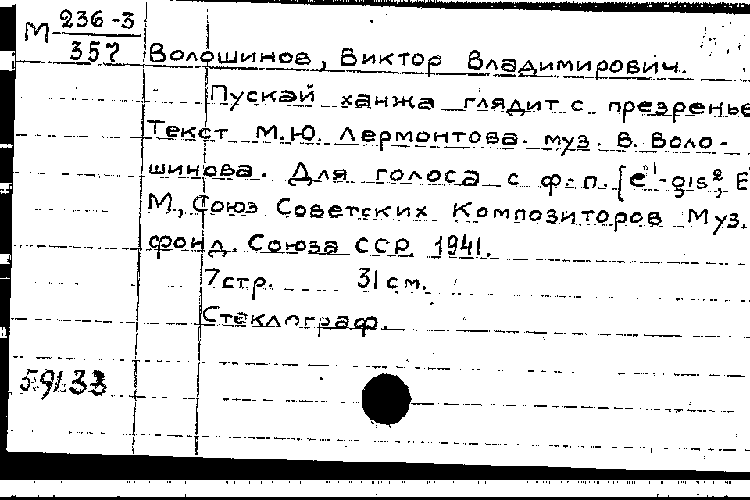 М 236-3
357
Волошинов, Виктор Владимирович.
Пускай ханжа глядит с презренье
Текст М.Ю. Лермонтова. муз. В. Воло-
шинова. Для голоса с ф-п. [e¹-gis², E
М., Союз Советских Композиторов Муз.
фонд. Союза ССР. 1941.
7 стр. 31 см.
Стеклограф.
59133